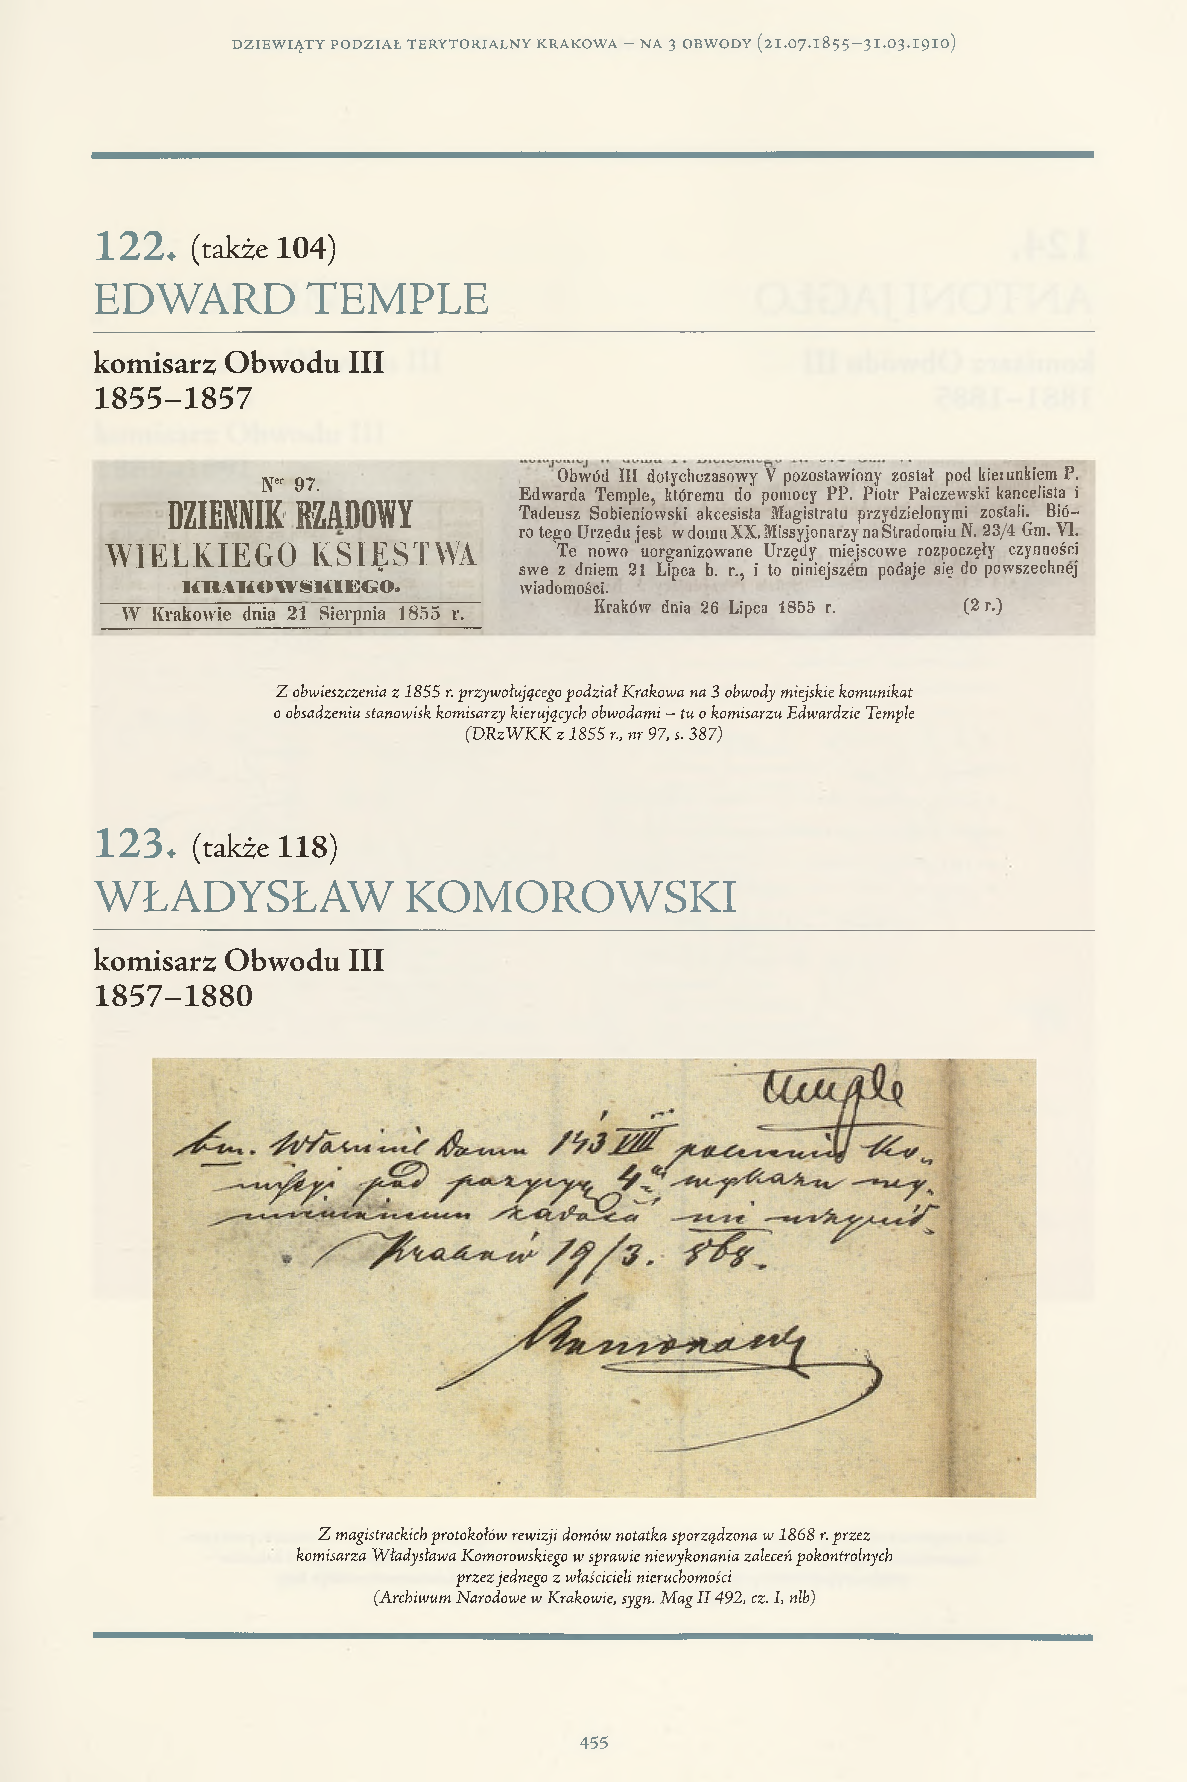 DZIEWIĄTY PODZIAŁ TERYTORIALNY KRAKOWA – NA 3 OBWODY (21.07.1855–31.03.1910)
122. (także 104)
EDWARD TEMPLE
komisarz Obwodu III
1855–1857
Ner 97.
DZIENNIK RZĄDOWY
WIELKIEGO KSIĘSTWA
KRAKOWSKIEGO.
W Krakowie dnia 21 Sierpnia 1855 r.
Obwód III dotychczasowy V pozostawiony został pod kierunkiem P.
Edwarda Temple, któremu do pomocy PP. Piotr Palczewski kancelista i
Tadeusz Sobieniowski akcesista Magistratu przydzielonymi zostali. Bió-
ro tego Urzędu jest w domu XX. Missyjonarzy na Stradomiu N. 23/4 Gm. VI.
Te nowo uorganizowane Urzędy miejscowe rozpoczęły czynności
swe z dniem 21 Lipca b. r., i to niniejszém podaje się do powszechnéj
wiadomości.
Kraków dnia 26 Lipca 1855 r. (2 r.)
Z obwieszczenia z 1855 r. przywołującego podział Krakowa na 3 obwody miejskie komunikat
o obsadzeniu stanowisk komisarzy kierujących obwodami – tu o komisarzu Edwardzie Temple
(DRzWKK z 1855 r., nr 97, s. 387)
123. (także 118)
WŁADYSŁAW KOMOROWSKI
komisarz Obwodu III
1857–1880
Temple
Właściciel Domu 143 VIII polecenia Ko„
misyi pod pozycyą 4tą wykazu wy„
mienionemu zadość nie uczynił.
Kraków 19/3. 868.
Komorowski
Z magistrackich protokołów rewizji domów notatka sporządzona w 1868 r. przez
komisarza Władysława Komorowskiego w sprawie niewykonania zaleceń pokontrolnych
przez jednego z właścicieli nieruchomości
(Archiwum Narodowe w Krakowie, sygn. Mag II 492, cz. I, nlb)
455